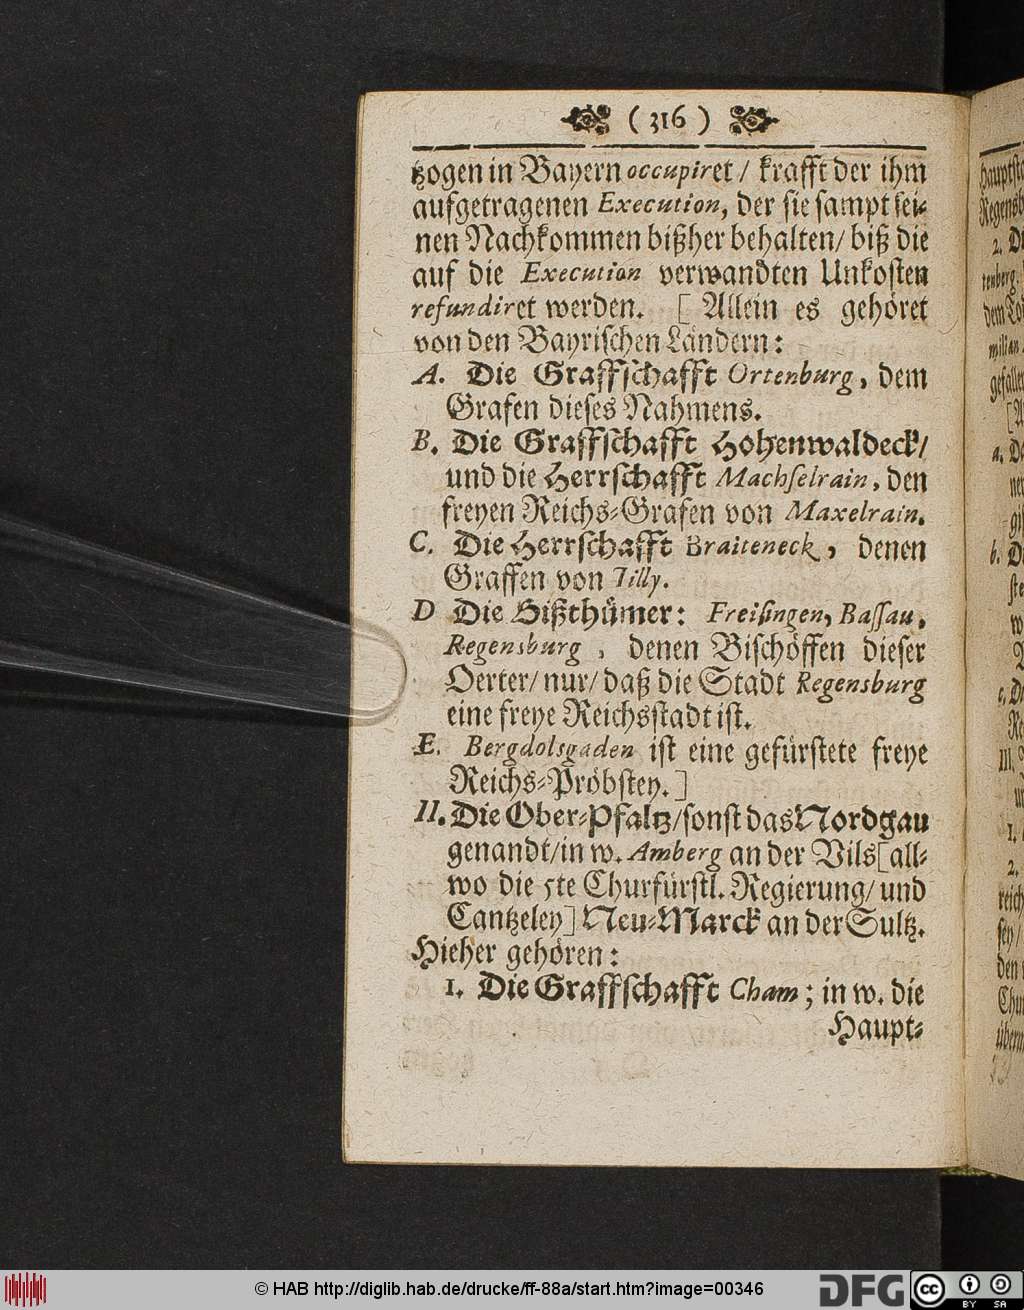 ( 316 )
tzogen in Bayern occupiret / krafft der ihm
aufgetragenen Execution, der sie sampt sei-
nen Nachkommen bißher behalten / biß die
auf die Execution verwandten Unkosten
refundiret werden. [ Allein es gehöret
von den Bayrischen Ländern:
A. Die Graffschafft Ortenburg, dem
Grafen dieses Nahmens.
B. Die Graffschafft Hohenwaldeck /
und die Herrschafft Machselrain, den
freyen Reichs-Grafen von Maxelrain.
C. Die Herrschafft Braiteneck, denen
Graffen von Tilly.
D Die Bißthümer: Freisingen, Bassau,
Regensburg, denen Bischöffen dieser
Oerter / nur / daß die Stadt Regensburg
eine freye Reichsstadt ist.
E. Bergdolsgaden ist eine gefürstete freye
Reichs-Pröbstey. ]
II. Die Ober-Pfaltz / sonst das Nordgau
genandt / in w. Amberg an der Vils [ all-
wo die 5te Churfürstl. Regierung / und
Cantzeley ] Neu-Marck an der Sultz.
Hieher gehören:
1. Die Graffschafft Cham; in w. die
Haupt-
Regensb
2. Di
gefallen
a. De
b. De
c. De
III.
1.
2.
reich
sey /
den
© HAB http://diglib.hab.de/drucke/ff-88a/start.htm?image=00346
DFG
cc
BY SA